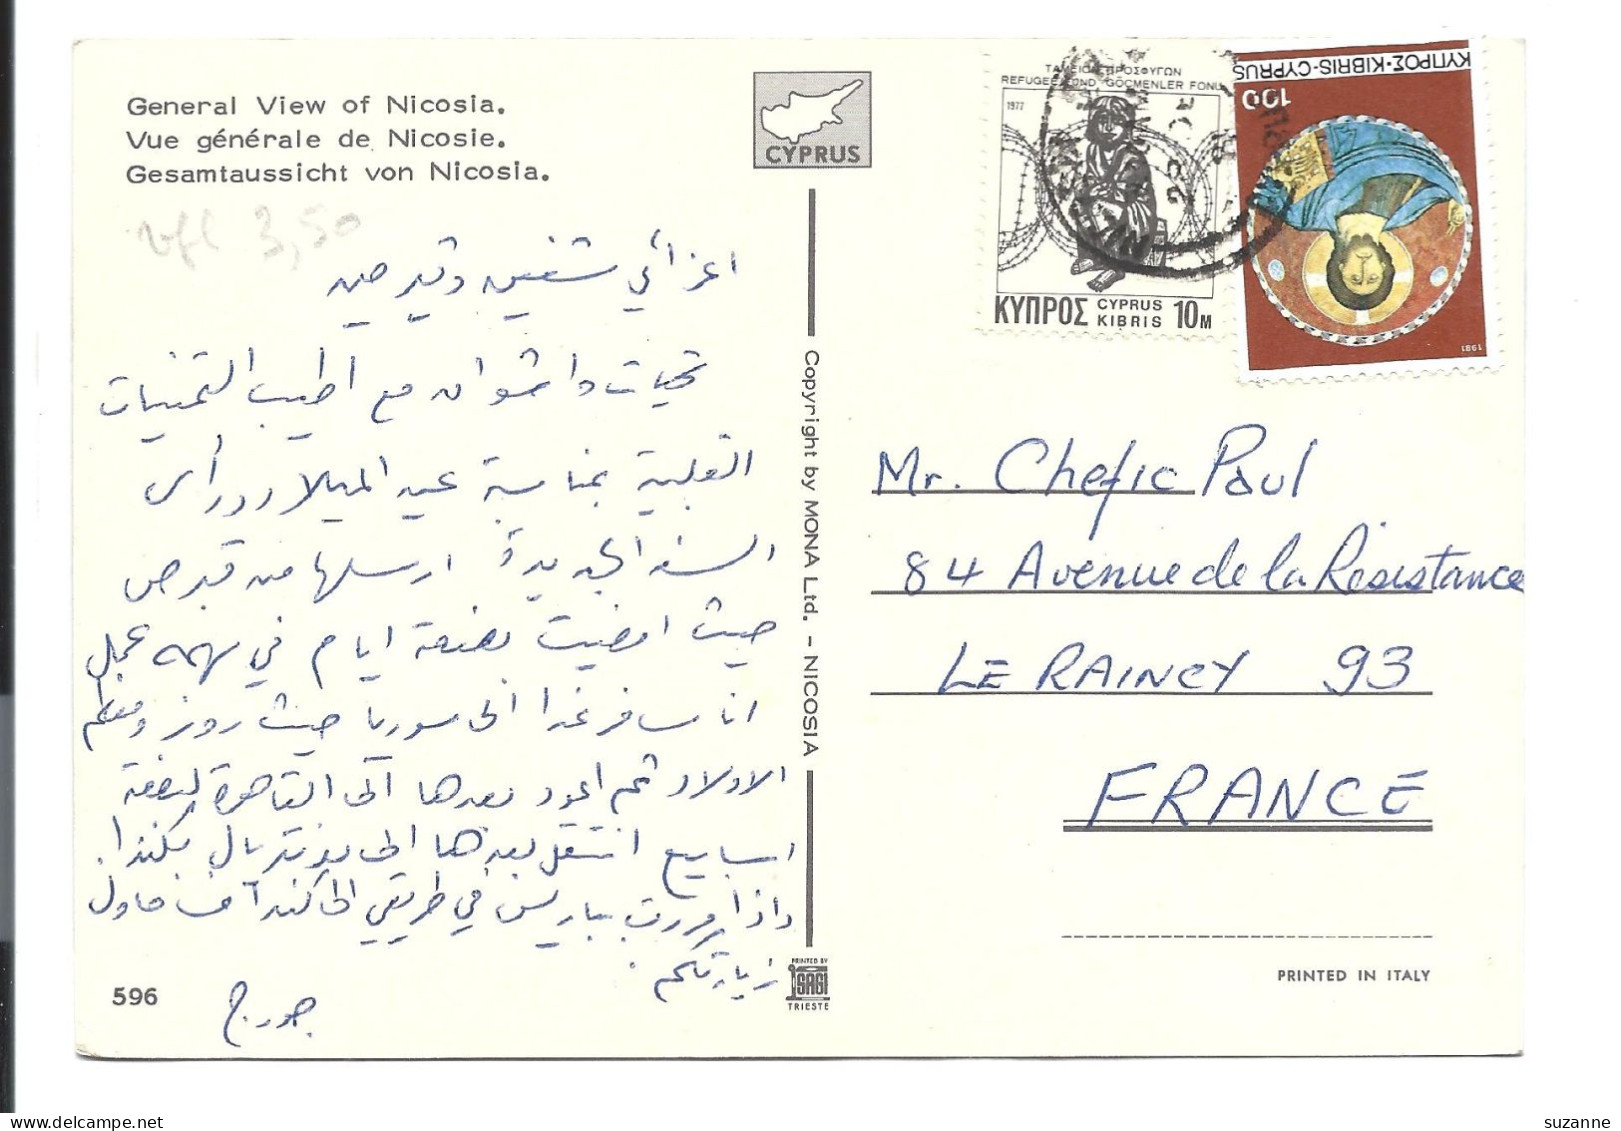 General View of Nicosia.
Vue générale de Nicosie.
Gesamtaussicht von Nicosia.
3,50
CYPRUS
ΤΑΜΕΙΟΝ ΠΡΟΣΦΥΓΩΝ
REFUGEE FUND GÖÇMENLER FONU
1977
ΚΥΠΡΟΣ CYPRUS KIBRIS 10M
ΚΥΠΡΟΣ·KIBRIS·CYPRUS
100
1981
اعزائي شفيق
تحيات واشواق مع اطيب التمنيات
القلبية بمناسبة عيد الميلاد ورأس
السنة الجديدة ارسلها من قبرص
حيث امضيت بضعة ايام في
انا مسافر غدا الى سوريا حيث روز ومعظم
الاولاد ثم اعود بعدها الى القاهرة لبضعة
اسابيع انتقل بعدها الى مونتريال بكندا.
واذا مررت بباريس في طريقي الى كندا سأحاول
زيارتكم.
جورج
Copyright by MONA Ltd. – NICOSIA
Mr. Chefic Paul
84 Avenue de la Résistance
LE RAINCY 93
FRANCE
PRINTED BY
SAGI
TRIESTE
596
PRINTED IN ITALY
suzanne